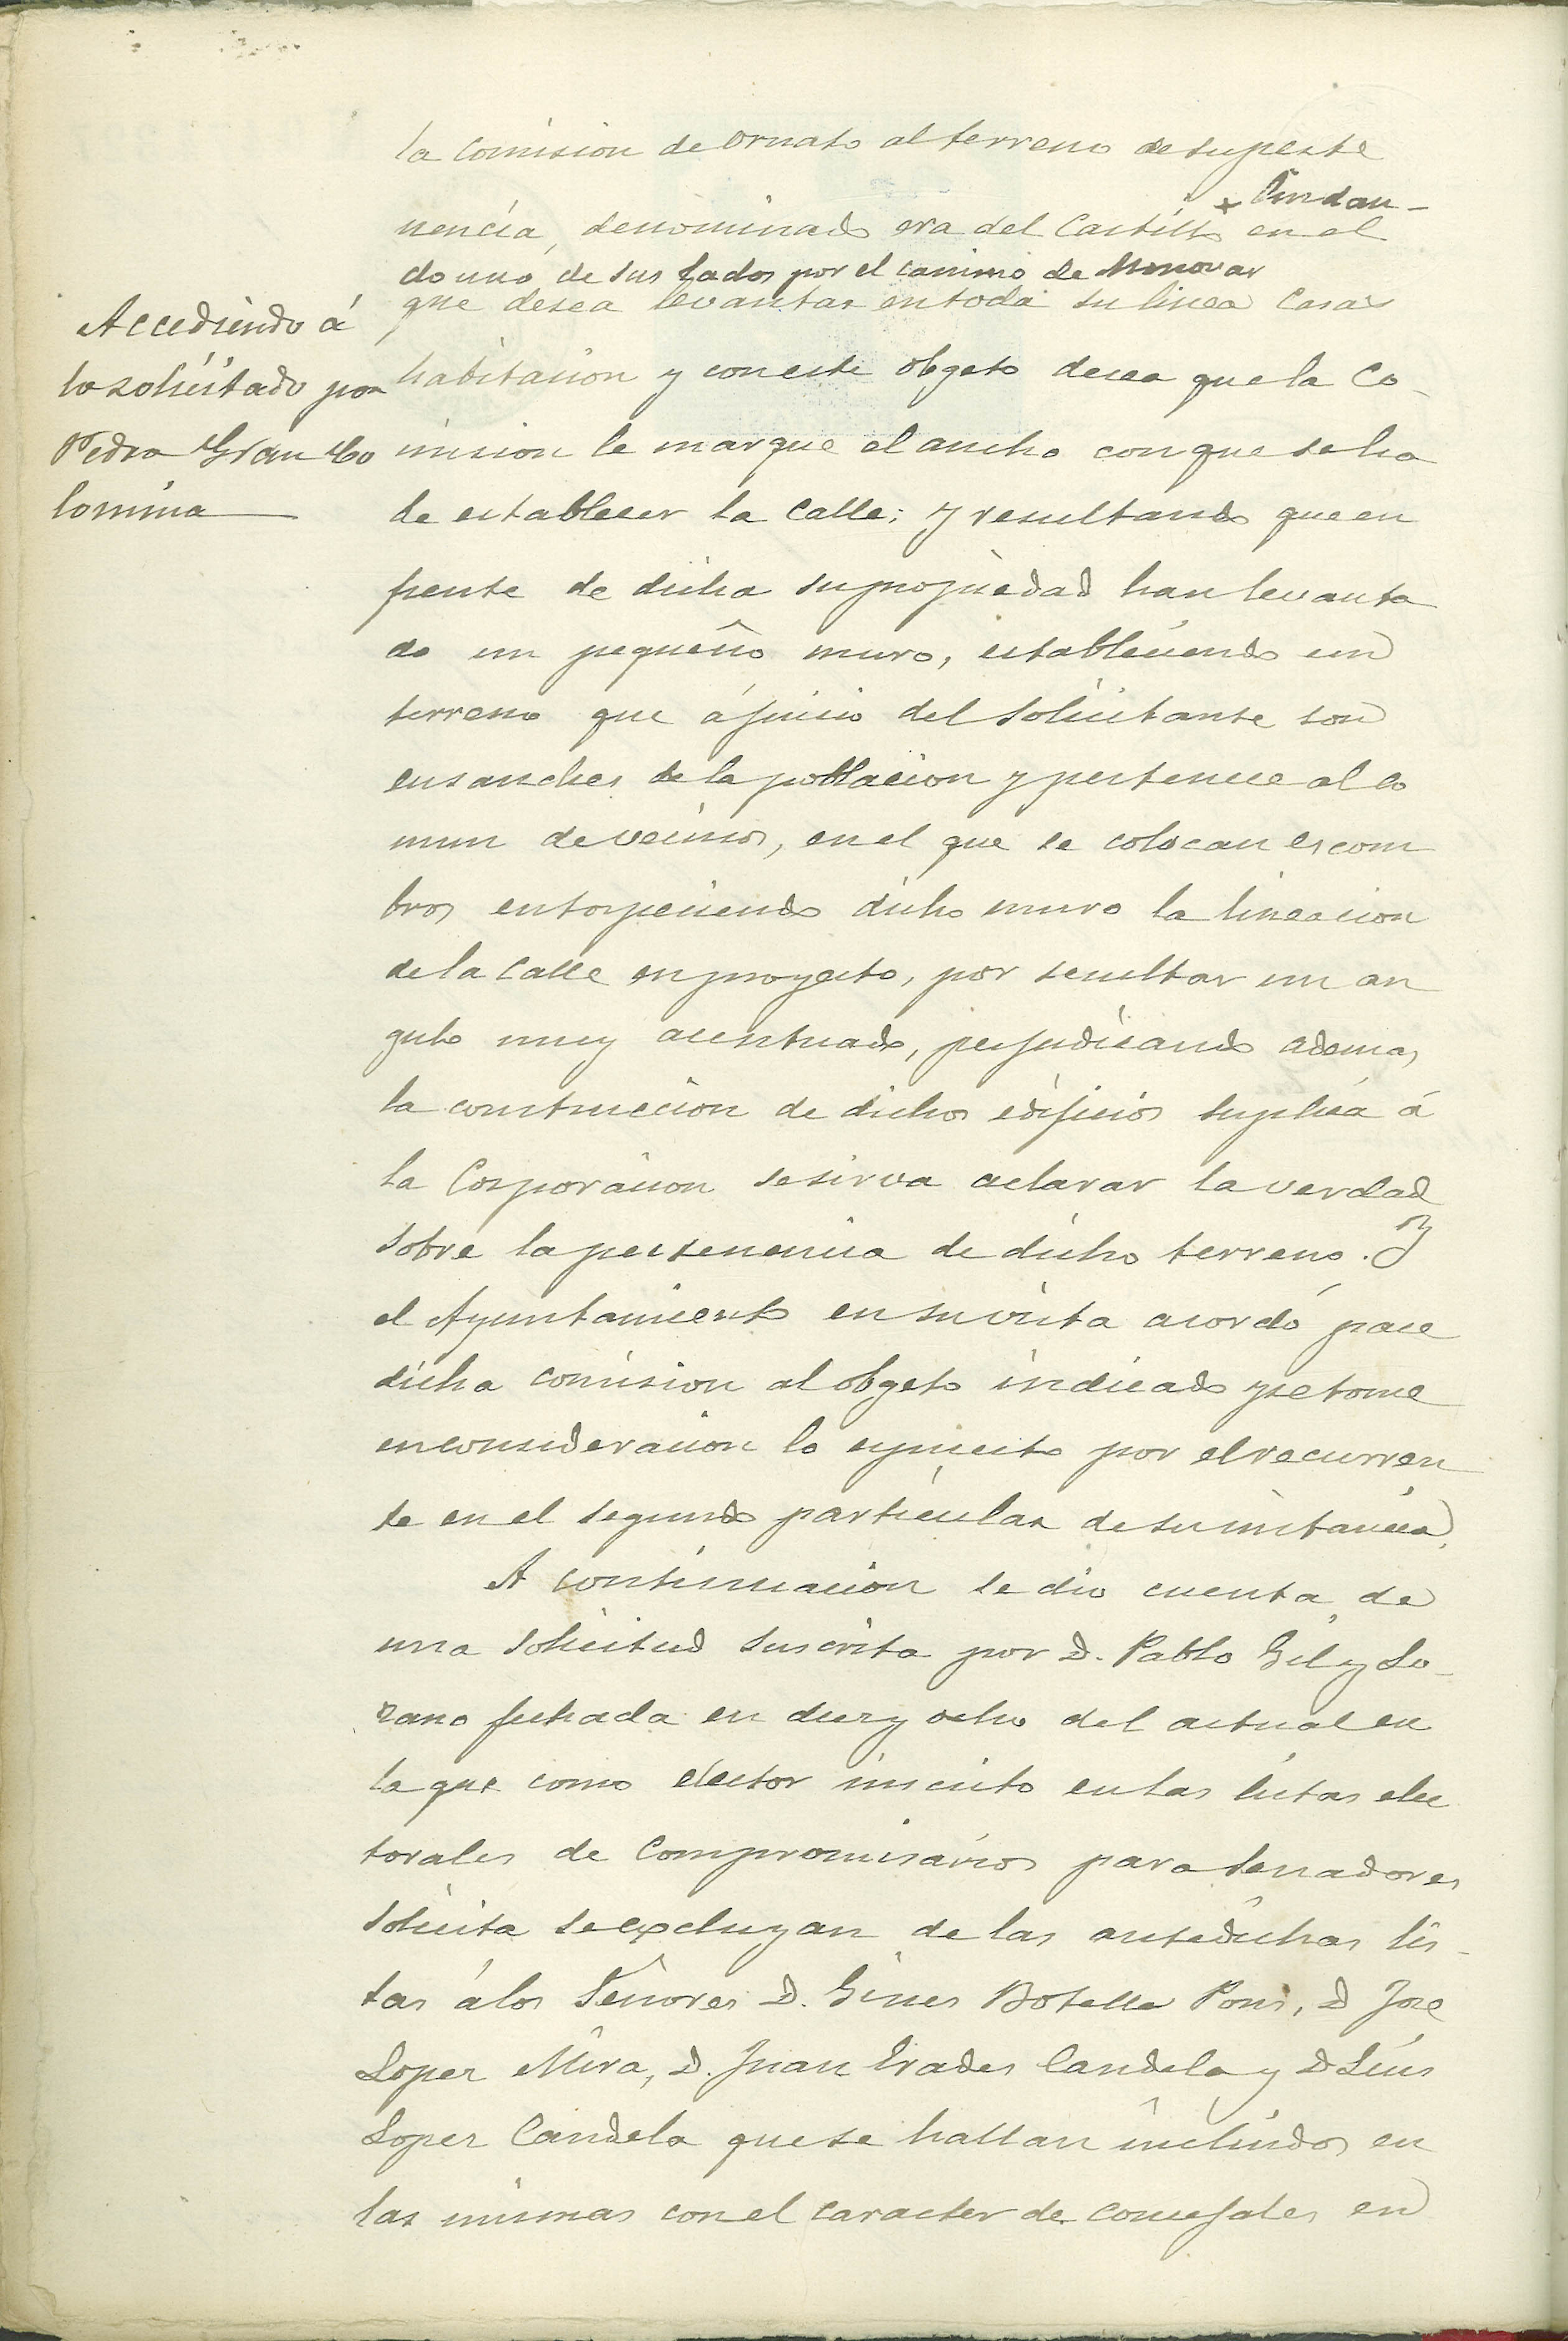 la Comision de Ornato al terreno de su perte
+ lindan-
nencia, denominado era del Castillo en el
do uno de sus lados por el camino de Monovar
que desea levantar en toda su linea casas
Accediendo á
lo solicitado por
Pedro Grau Co
lomina
habitacion y con este obgeto desea que la Co-
mision le marque el ancho con que se ha
de establecer la Calle; y resultando que en
frente de dicha su propiedad han levanta
do un pequeño muro, estableciendo un
terreno que á juicio del solicitante son
ensanches de la poblacion y pertenece al co
mun de vecinos, en el que se colocan escom
bros entorpeciendo dicho muro la lineacion
de la Calle en proyecto, por resultar un an
gulo muy acentuado, perjudicando ademas
la construccion de dichos edificios suplica á
la Corporacion se sirva aclarar la verdad
sobre la pertenencia de dicho terreno. Y
el Ayuntamiento en su vista acordó pase
dicha comision al obgeto indicado y se tome
en consideracion lo expuesto por el recurren
te en el segundo particular de su instancia.
A continuacion se dio cuenta de
una solicitud suscrita por D. Pablo Gil y Lo-
zano fechada en diez y ocho del actual en
la que como elector inscrito en las listas elec
torales de Compromisarios para Senadores
solicita se excluyan de las antedichas lis-
tas á los Señores D. Gines Botella Pons, D Jose
Lopez Mira, D. Juan Erades Candela y D Luis
Lopez Candela que se hallan incluidos en
las mismas con el caracter de concejales en